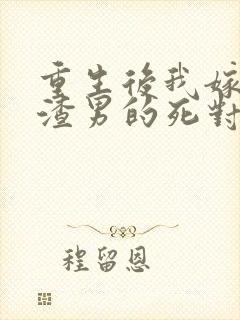 重生後我嫁
渣男的死對
程留恩